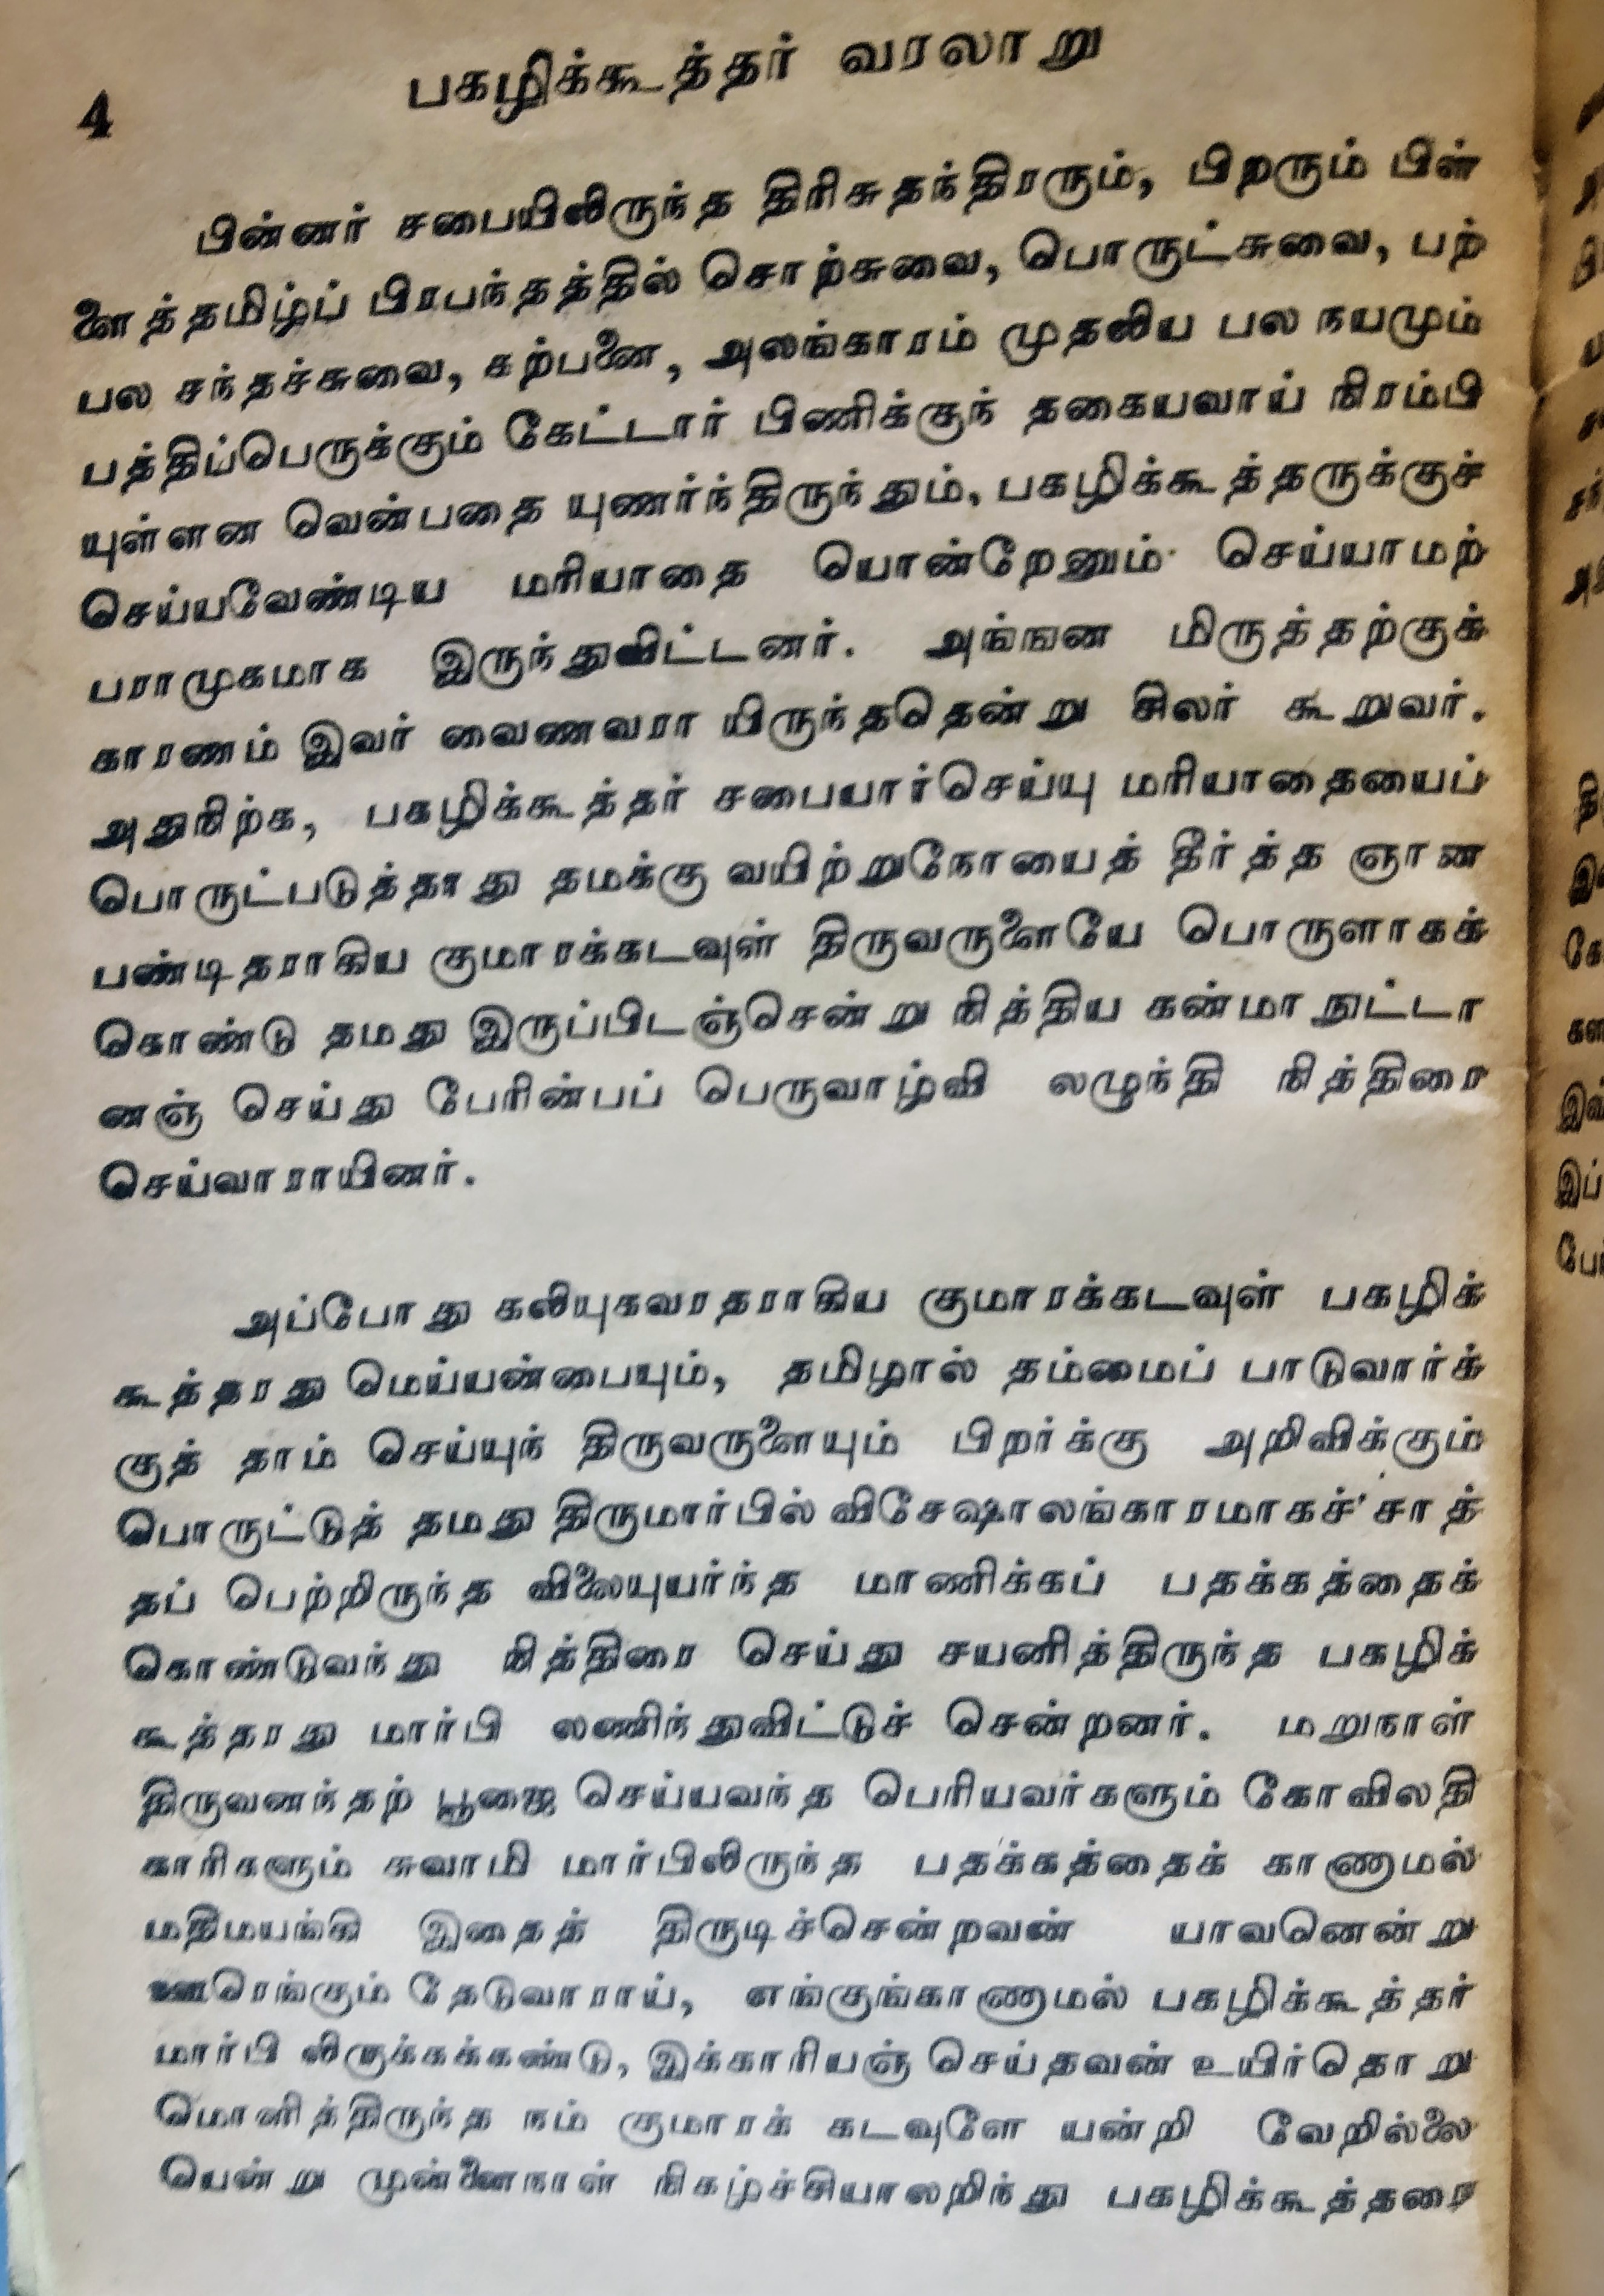 4
பகழிக்கூத்தர் வரலாறு
பின்னர் சபையிலிருந்த திரிசுதந்திரரும், பிறரும் பிள்
ளைத்தமிழ்ப் பிரபந்தத்தில் சொற்சுவை, பொருட்சுவை, பற்
பல சந்தச்சுவை, கற்பனை, அலங்காரம் முதலிய பல நயமும்
பத்திப்பெருக்கும் கேட்டார் பிணிக்குந் தகையவாய் நிரம்பி
யுள்ளன வென்பதை யுணர்ந்திருந்தும், பகழிக்கூத்தருக்குச்
செய்யவேண்டிய மரியாதை யொன்றேனும் செய்யாமற்
பராமுகமாக இருந்துவிட்டனர். அங்ஙன மிருத்தற்குக்
காரணம் இவர் வைணவரா யிருந்ததென்று சிலர் கூறுவர்.
அதுநிற்க, பகழிக்கூத்தர் சபையார்செய்யு மரியாதையைப்
பொருட்படுத்தாது தமக்கு வயிற்றுநோயைத் தீர்த்த ஞான
பண்டிதராகிய குமாரக்கடவுள் திருவருளையே பொருளாகக்
கொண்டு தமது இருப்பிடஞ்சென்று நித்திய கன்மாநுட்டா
னஞ் செய்து பேரின்பப் பெருவாழ்வி லழுந்தி நித்திரை
செய்வாராயினர்.
அப்போது கலியுகவரதராகிய குமாரக்கடவுள் பகழிக்
கூத்தரது மெய்யன்பையும், தமிழால் தம்மைப் பாடுவார்க்
குத் தாம் செய்யுந் திருவருளையும் பிறர்க்கு அறிவிக்கும்
பொருட்டுத் தமது திருமார்பில் விசேஷாலங்காரமாகச் சாத்
தப் பெற்றிருந்த விலையுயர்ந்த மாணிக்கப் பதக்கத்தைக்
கொண்டுவந்து நித்திரை செய்து சயனித்திருந்த பகழிக்
கூத்தரது மார்பி லணிந்துவிட்டுச் சென்றனர். மறுநாள்
திருவனந்தற் பூஜை செய்யவந்த பெரியவர்களும் கோவிலதி
காரிகளும் சுவாமி மார்பிலிருந்த பதக்கத்தைக் காணாமல்
மதிமயங்கி இதைத் திருடிச்சென்றவன் யாவனென்று
ஊரெங்கும் தேடுவாராய், எங்குங்காணாமல் பகழிக்கூத்தர்
மார்பி லிருக்கக்கண்டு, இக்காரியஞ் செய்தவன் உயிர்தொறு
மொளித்திருந்த நம் குமாரக் கடவுளே யன்றி வேறில்லை
யென்று முன்னைநாள் நிகழ்ச்சியாலறிந்து பகழிக்கூத்தரை